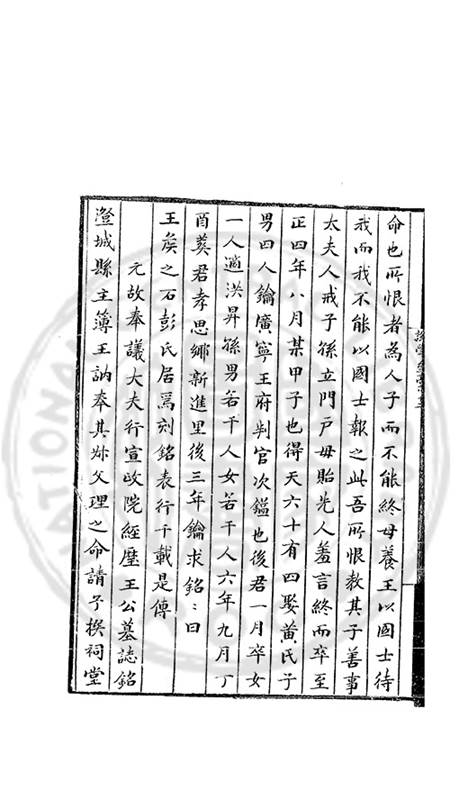 命也所恨者為人子而不能終母養王以國士待
我而我不能以國士報之此吾所恨教其子善事
太夫人戒子孫立門戶毋貽先人羞言終而卒至
正四年八月某甲子也得天六十有四娶黃氏子
男四人鑰廣寧王府判官次鎰也後君一月卒女
一人適洪昇孫男若干人女若干人六年九月丁
酉葬君孝思鄉新進里後三年鑰求銘〻曰
王矦之石彭氏居焉刻銘表行千載是傳
元故奉議大夫行宣政院經歷王公墓誌銘
澄城縣主簿王訥奉其姊父理之命請予撰祠堂